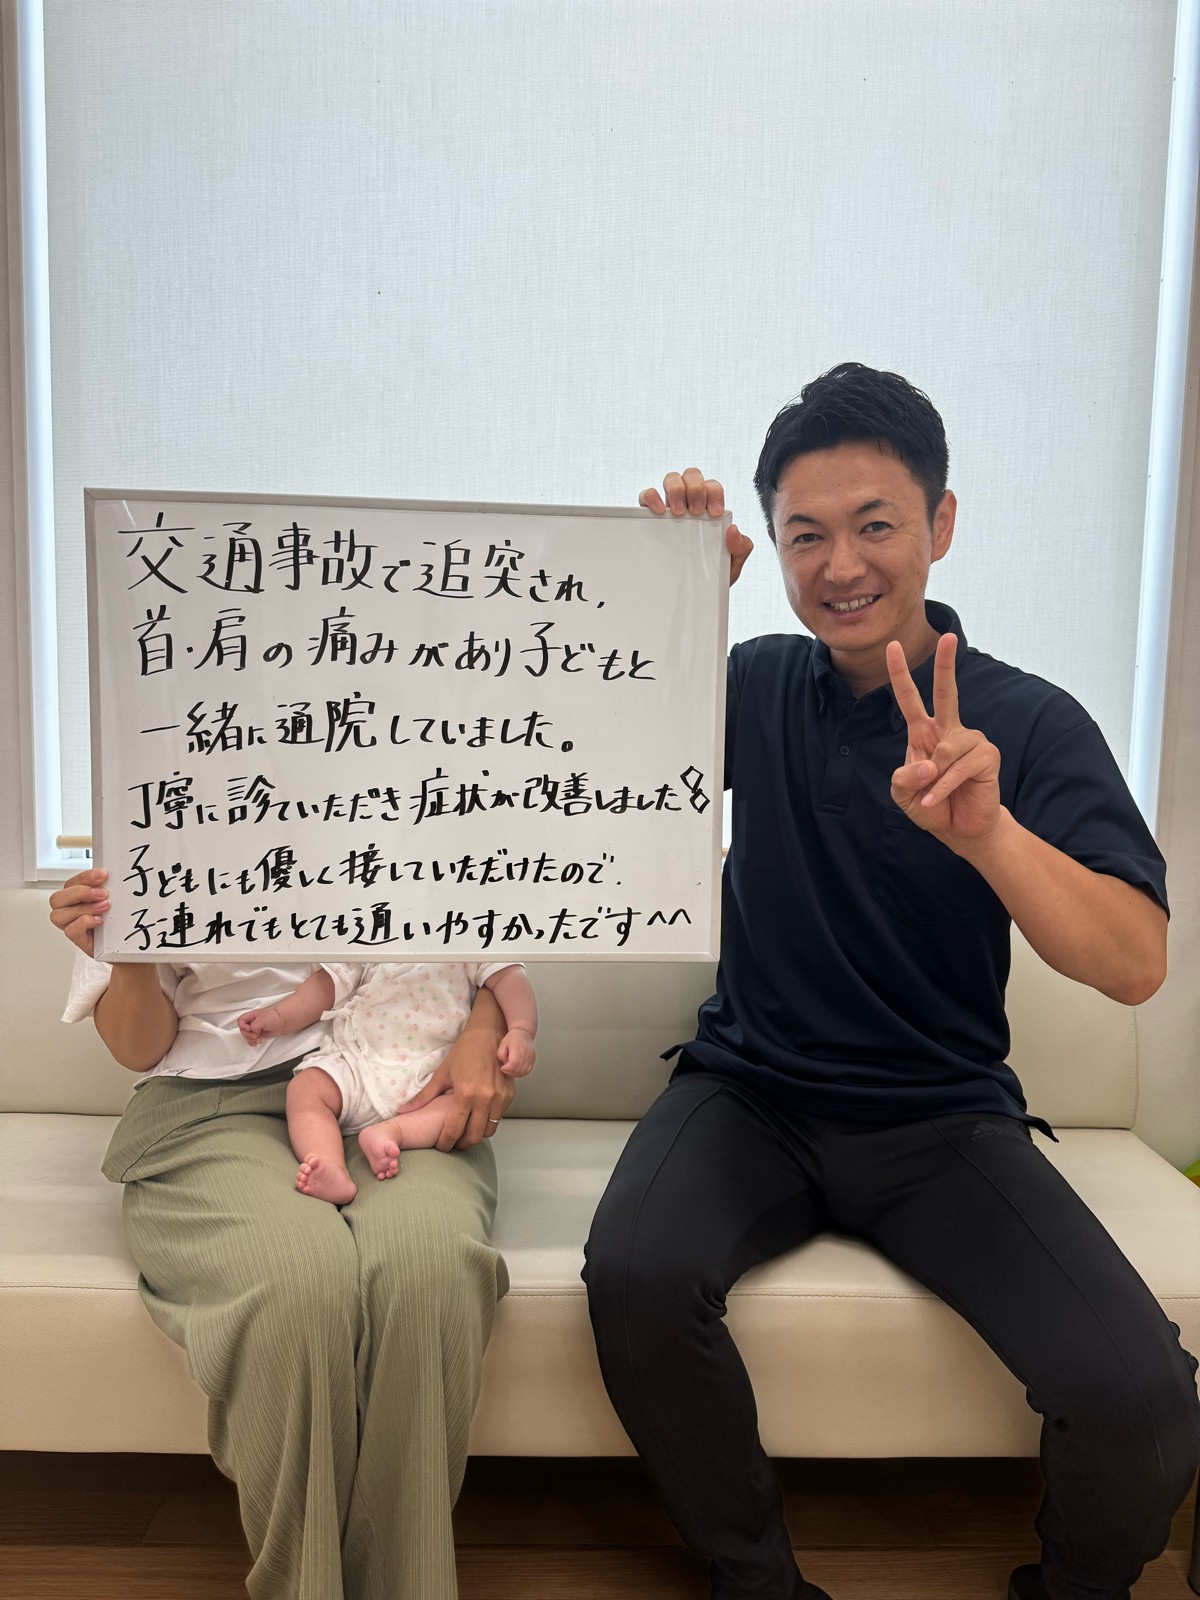 交通事故で追突され、
首・肩の痛みがあり子どもと
一緒に通院していました。
丁寧に診ていただき症状が改善しました!!
子どもにも優しく接していただけたので、
子連れでもとても通いやすかったです^^